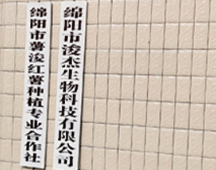 绵阳市薯浚红薯种植专业合作社
绵阳市浚杰生物科技有限公司